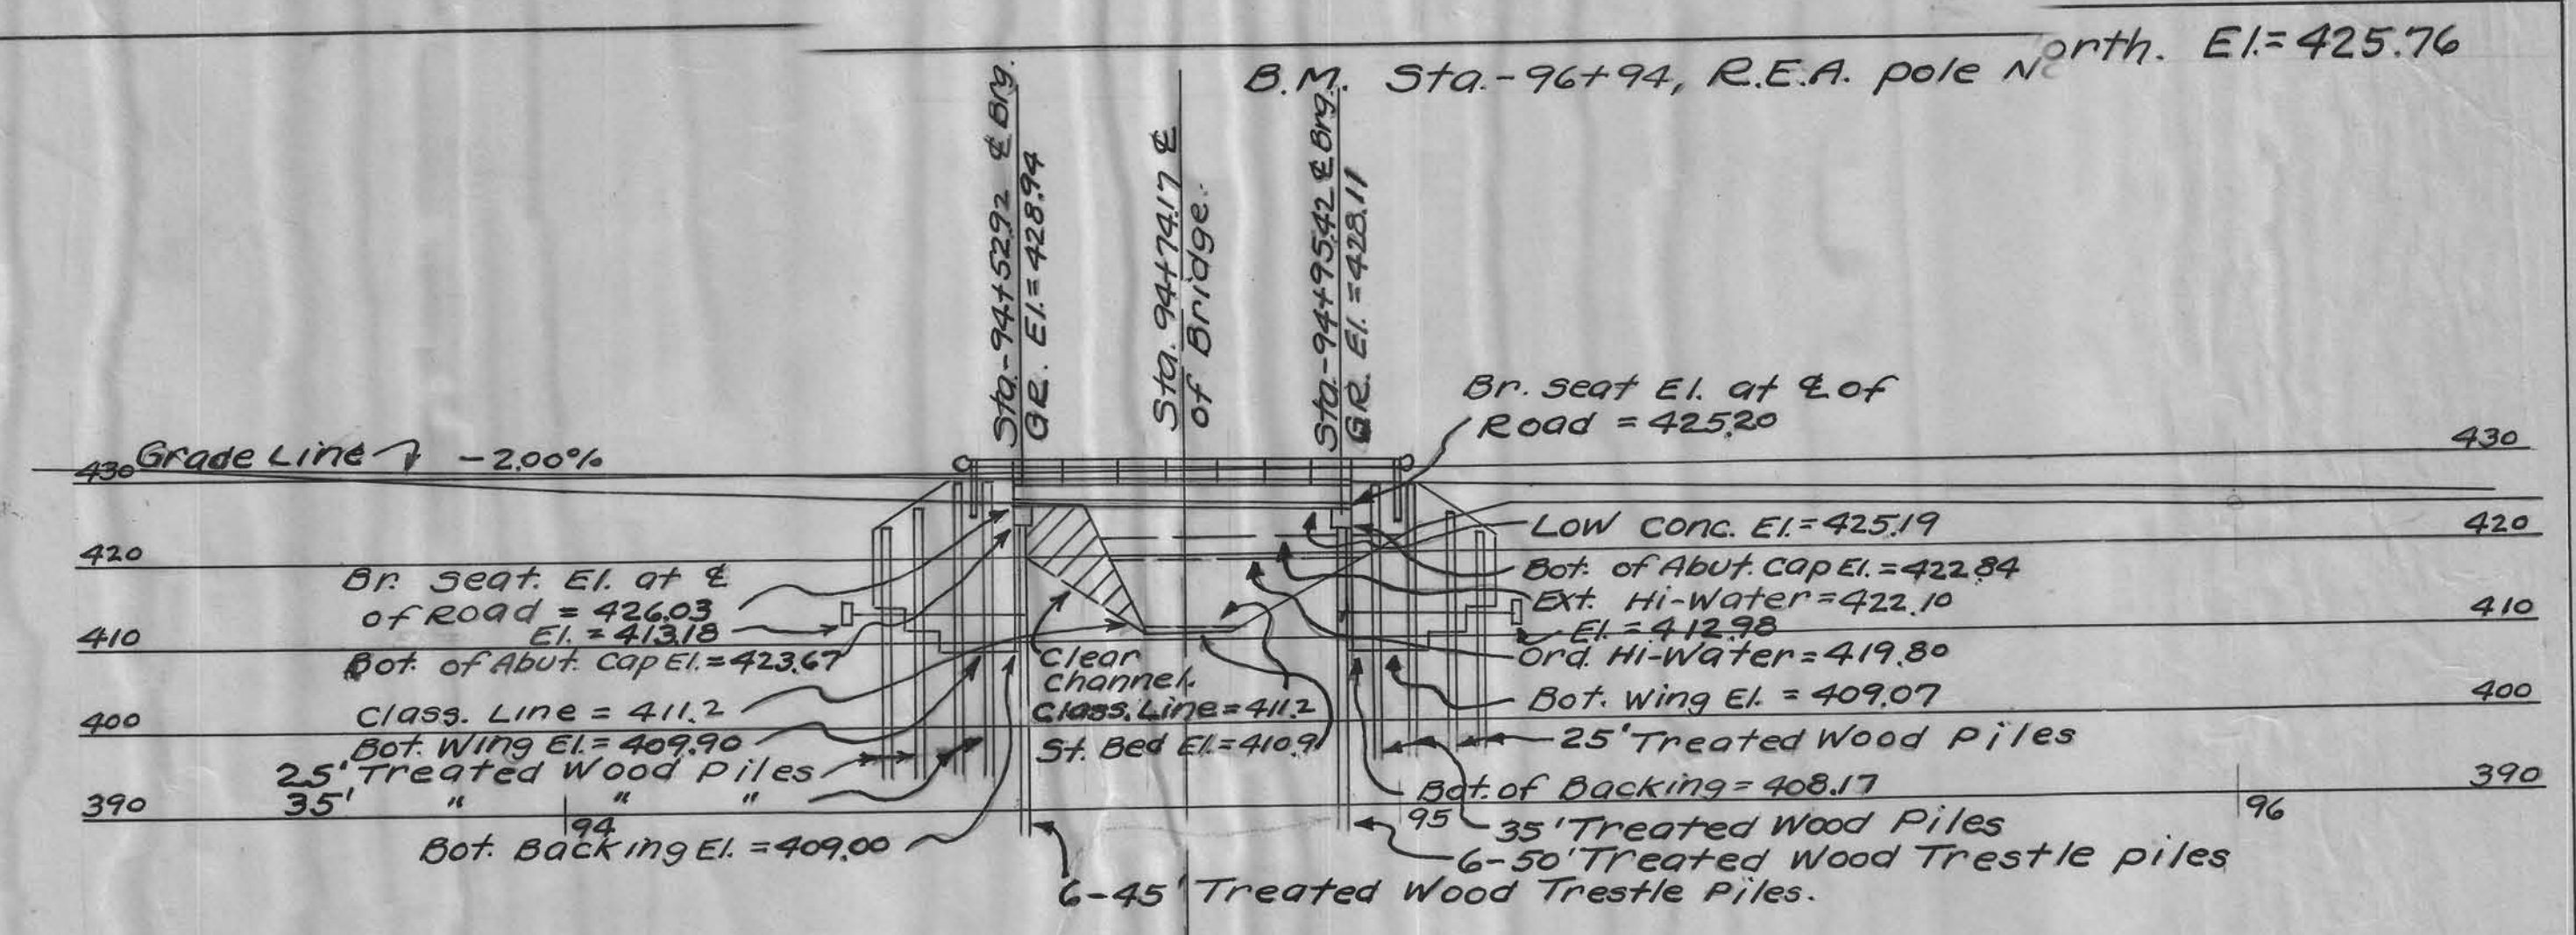 B.M. Sta.-96+94, R.E.A. pole North. El.=425.76
Sta.-94+52.92 ℄ Brg.
GR. El.=428.94
Sta. 94+74.17 ℄
of Bridge.
Sta.-94+95.42 ℄ Brg.
GR. El.=428.11
Br. Seat El. at ℄ of
Road = 425.20
430
Grade Line
-2.00%
430
420
420
410
410
400
400
390
390
94
95
96
Br. Seat. El. at ℄
of Road = 426.03
El. = 413.18
Bot. of Abut. Cap El.=423.67
Class. Line = 411.2
Bot. Wing El.=409.90
25' Treated Wood Piles
35' " " "
Bot. Backing El. =409.00
Clear
Channel.
Class. Line=411.2
St. Bed El.=410.9
Low Conc. El.=425.19
Bot. of Abut. Cap El.=422.84
Ext. Hi-Water=422.10
El. = 412.98
Ord. Hi-Water=419.80
Bot. Wing El. = 409.07
25' Treated Wood Piles
Bot. of Backing=408.17
35' Treated Wood Piles
6-50' Treated Wood Trestle piles
6-45' Treated Wood Trestle Piles.